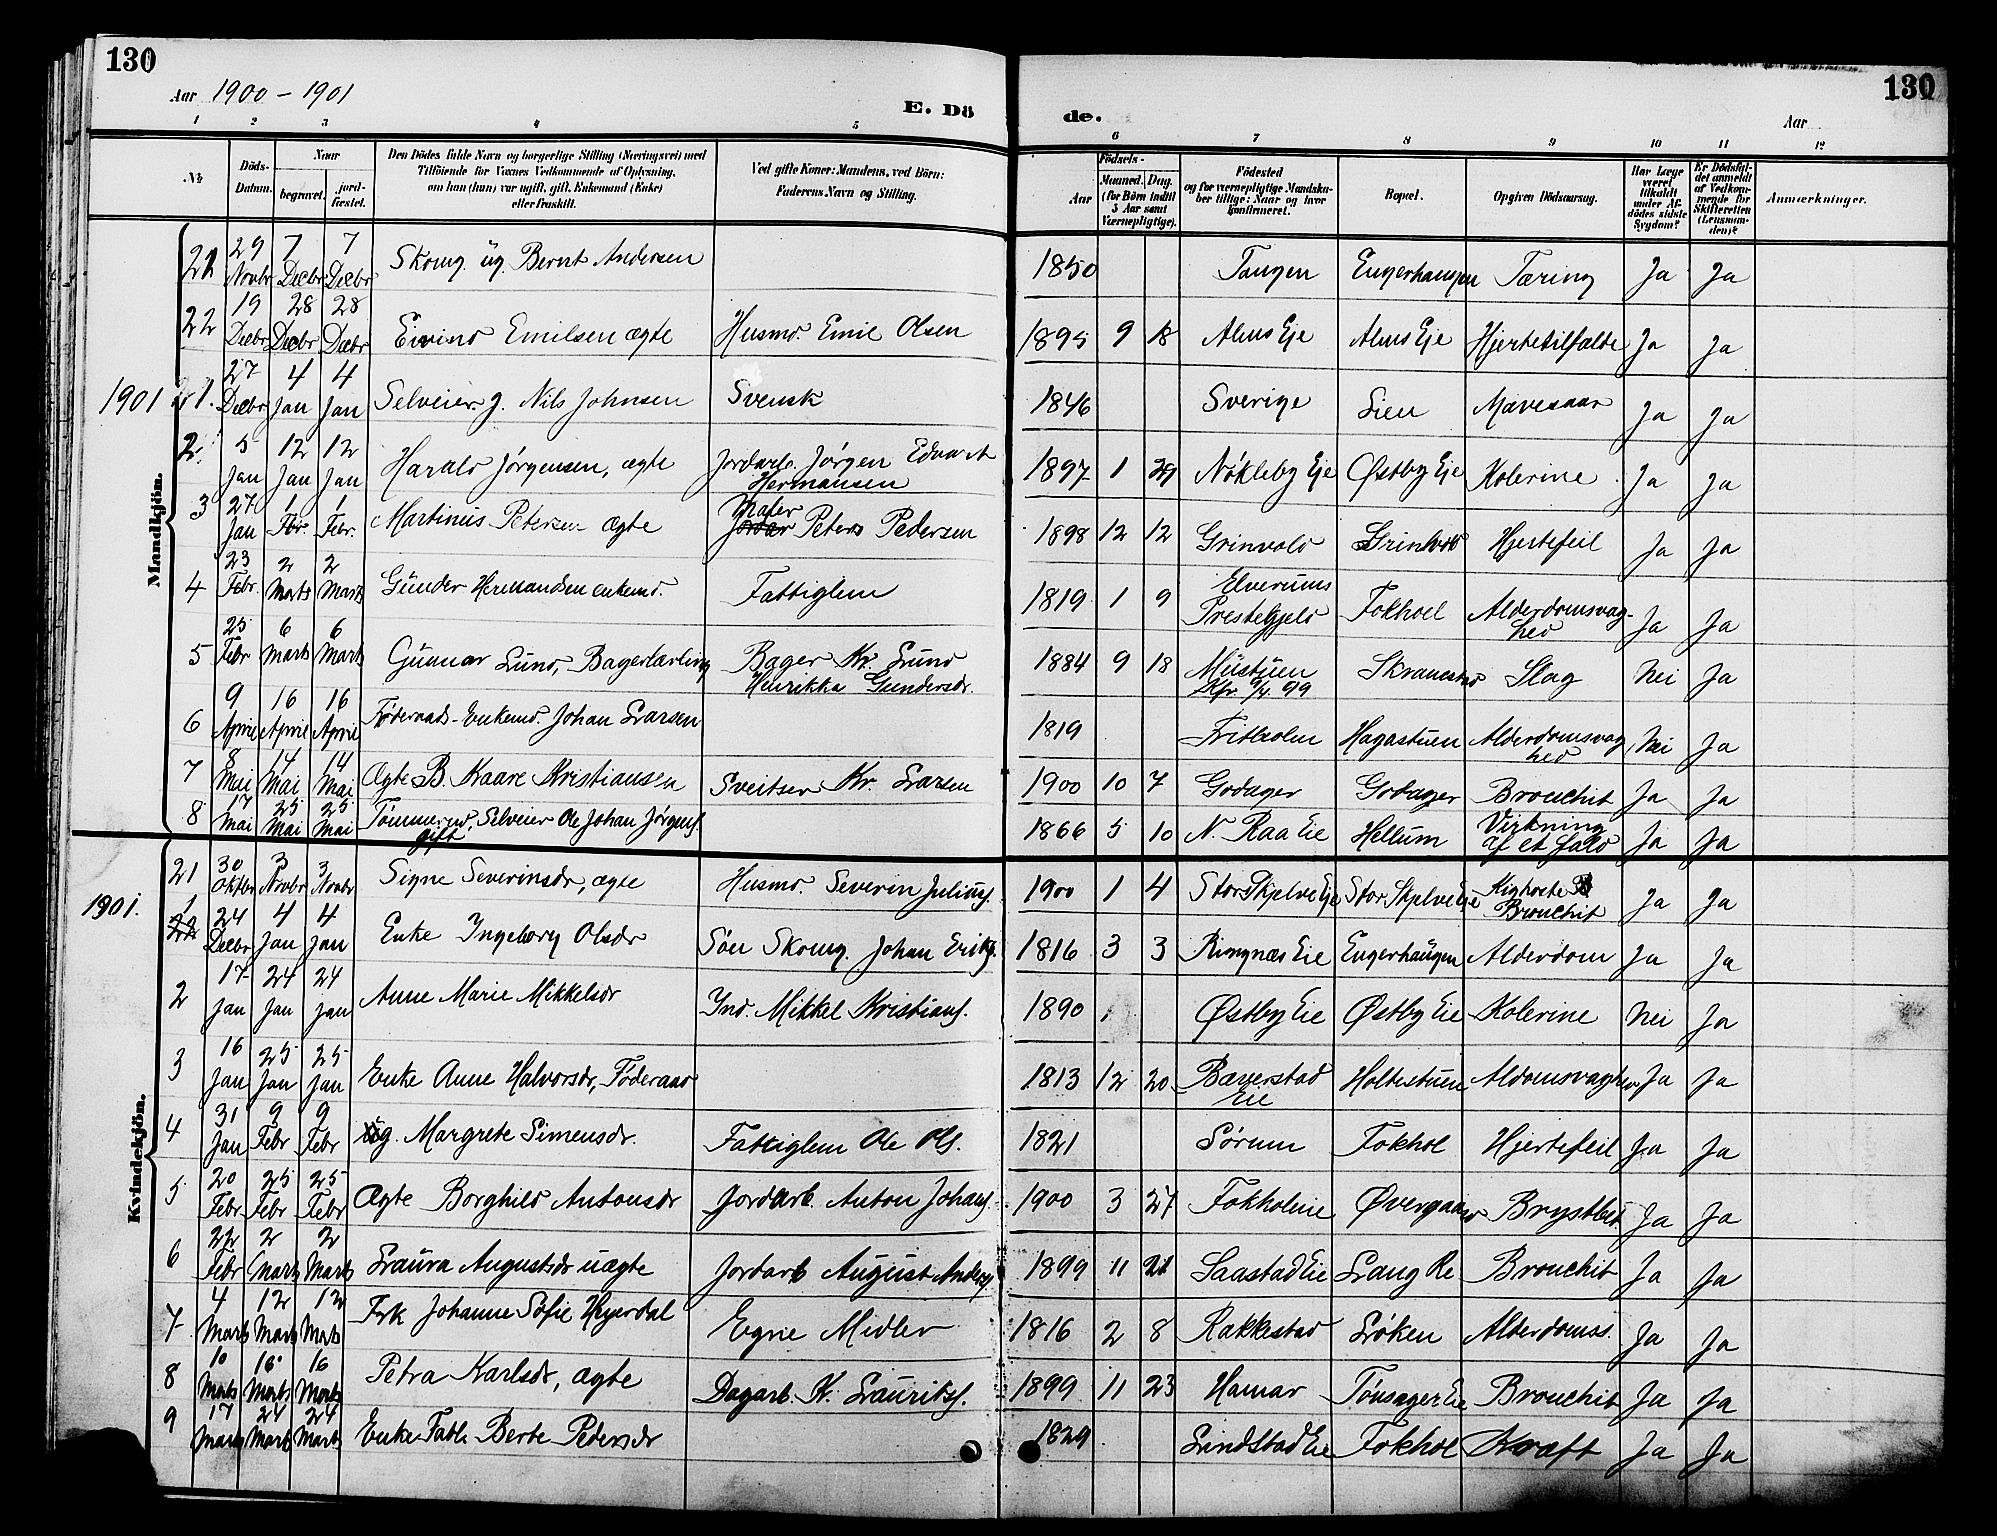 130
130
Aar 1900 - 1901
E. Dö
de.
Aar
1 2 3 4 5 6 7 8 9 10 11 12
No
Döds-Datum.
Naar
begravet.
jord-fæstet.
Den Dödes fulde Navn og borgerlige Stilling (Næringsvei) med
Tilföiende for Voxnes Vedkommende af Oplysning,
om han (hun) var ugift, gift, Enkemand (Enke)
eller fraskilt.
Ved gifte Koner: Mandens, ved Börn:
Faderens Navn og Stilling.
Födsels-
Aar
Maaned. Dag.
(for Börn indtil
5 Aar samt
Værnepligtige).
Födested
og for værnepligtige Mandska-
ber tillige: Naar og hvor
konfirmeret.
Bopæl.
Opgiven Dödsaarsag.
Har Læge
været
tilkaldt
under Af-
dödes sidste
Sygdom?
Er Dödsfal-
det anmeldt
af Vedkom-
mende for
Skifteretten
(Lensman-
den)?
Anmærkninger.
Mandkjön.
21 29 Novbr 7 Decbr 7 Decbr Skomg. üg. Bernt Andersen 1850 Tangen Engerhaugen Tæring Ja Ja
22 19 Decbr 28 Decbr 28 Decbr Eivind Emilsen ægte Husmd. Emil Olsen 1895 9 18 Alms Eje Alms Eje Hjertetilfælde Ja Ja
1901 1. 27 Decbr 4 Jan 4 Jan Selveier g. Nils Johnsen Svensk 1846 Sverige Lien Mavesaar Ja Ja
2. 5 Jan 12 Jan 12 Jan Harald Jørgensen, ægte Jordarb. Jørgen Edvart Hermansen 1897 1 29 Nøkleby Eje Østby Eje Kolerine Ja Ja
3 27 Jan 1 Febr. 1 Febr. Martinus Petersen ægte Peter Pedersen 1898 12 12 Grinvold Grinvold Hjertefeil Ja Ja
4 23 Febr. 2 Marts 2 Marts Günder Hermandsen enkemd. Fattiglem 1819 1 9 Elverums Prestegjeld Fokhol Alderdomsvaghed Ja Ja
5 25 Febr 6 Marts 6 Marts Gunnar Lund, Bagerlærling Bager Kr. Lund Henrikka Gundersdr. 1884 9 18 Müstüen Kfr. 9/4 99 Skranestad Slag Nei Ja
6 9 April 16 April 16 April Føderaads-Enkemd. Johan Larsen 1819 Fritholm Hagastuen Alderdomsvaghed Nei Ja
7 8 Mai 14 Mai 14 Mai Ægte B. Kaare Kristiansen Sveitser Kr. Larsen 1900 10 7 Godager Godager Bronchit Ja Ja
8 17 Mai 25 Mai 25 Mai Tømmermd., Selveier Ole Johan Jørgens. gift. 1866 5 10 N. Raa Eie Hellum Virkning af et fald Ja Ja
Kvindekjön.
21 30 Oktbr 3 Novbr 3 Novbr Signe Severinsdr, ægte Husmd. Severin Juliuss. 1900 1 4 Stor Skjelve Eje Stor Skjelve Eje Kighoste Bronchit Ja Ja
1901. 1 24 Decbr 4 Jan 4 Jan Enke Ingeborg Olsdr Søn Skomg. Johan Eriks. 1816 3 3 Ringnæs Eie Engerhaugen Alderdom Ja Ja
2 17 Jan 24 Jan 24 Jan Anne Marie Mikkelsdr Ind. Mikkel Kristians. 1890 Østby Eie Østby Eie Kolerine Nei Ja
3 16 Jan 25 Jan 25 Jan Enke Anne Halvorsdr, Føderaad 1813 12 20 Bæverstad Eie Holtestuen Aldomsvaghed Ja Ja
4 31 Jan 9 Febr 9 Febr üg. Margrete Simensdr. Fattiglem Ole Ols. 1821 Sørum Fokhol Hjertefeil Ja Ja
5 20 Febr 25 Febr 25 Febr Ægte Borghild Antonsdr Jordarb. Anton Johans. 1900 3 27 Fokholeie Øvergaard Brystbet. Ja Ja
6 22 Febr 2 Marts 2 Marts Laura Augustsdr uægte Jordarb August Anders. 1899 11 21 Saastad Eie Lang Re Bronchit Ja Ja
7 4 Marts 12 Marts 12 Marts Frk Johanne Sofie Heyerdal Egne Midler 1816 2 8 Rakkestad Løken Alderdomss. Ja Ja
8 10 Marts 16 Marts 16 Marts Petra Karlsdr, ægte Dagarb. K. Laurits. 1899 11 23 Hamar Tønsager Eie Bronchit Ja Ja
9 17 Marts 24 Marts 24 Marts Enke Fattl. Berte Pedersdr 1829 Lindstad Eie Fokhol Kræft Ja Ja